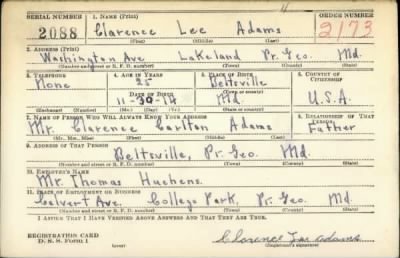 SERIAL NUMBER 1. NAME (Print) ORDER NUMBER
2088 Clarence Lee Adams 2173
(First) (Middle) (Last)
2. ADDRESS (Print)
Washington Ave Lakeland Pr. Geo. Md.
(Number and street or R. F. D. number) (Town) (County) (State)
3. TELEPHONE 4. AGE IN YEARS 5. PLACE OF BIRTH 6. COUNTRY OF CITIZENSHIP
None 25 Beltsville
DATE OF BIRTH (Town or county)
11-30-14 Md. U.S.A.
(Exchange) (Number) (Mo.) (Day) (Yr.) (State or country)
7. NAME OF PERSON WHO WILL ALWAYS KNOW YOUR ADDRESS 8. RELATIONSHIP OF THAT PERSON
Mr. Clarence Carlton Adams Father
(Mr., Mrs., Miss) (First) (Middle) (Last)
9. ADDRESS OF THAT PERSON
Beltsville, Pr. Geo. Md.
(Number and street or R. F. D. number) (Town) (County) (State)
10. EMPLOYER'S NAME
Mr. Thomas
11. PLACE OF EMPLOYMENT OR BUSINESS
Calvert Ave. College Park, Pr. Geo. Md.
(Number and street or R. F. D. number) (Town) (County) (State)
I AFFIRM THAT I HAVE VERIFIED ABOVE ANSWERS AND THAT THEY ARE TRUE.
REGISTRATION CARD
D. S. S. Form 1 (over) Clarence Lee Adams
(Registrant's signature)